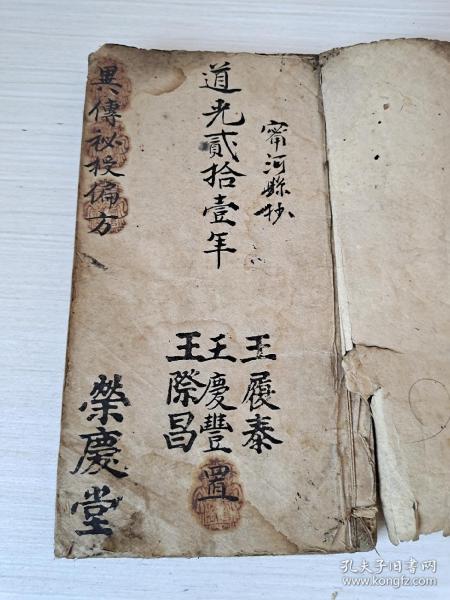 甯河縣抄
道光貳拾壹年
王履泰
王慶豐置
王際昌
異傳祕授偏方
榮慶堂
孔夫子旧书网
www.kongfz.com